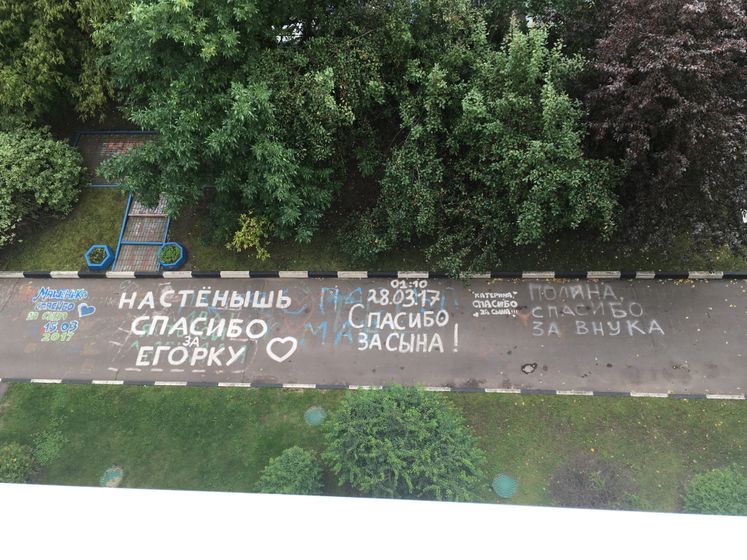 СПАСИБО
15.03
2017
НАСТЁНЫШЬ
СПАСИБО
ЗА
ЕГОРКУ
01:10
28.03.17
СПАСИБО
ЗА СЫНА!
КАТЕРИНА,
СПАСИБО
ЗА СЫНА!!!
ПОЛИНА,
СПАСИБО
ЗА ВНУКА